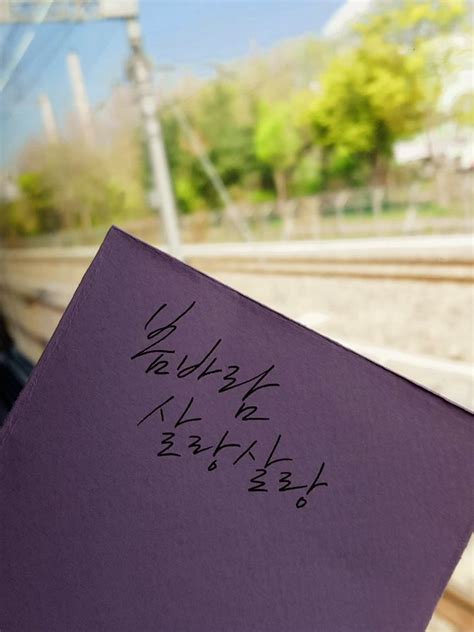 봄바람
살랑살랑